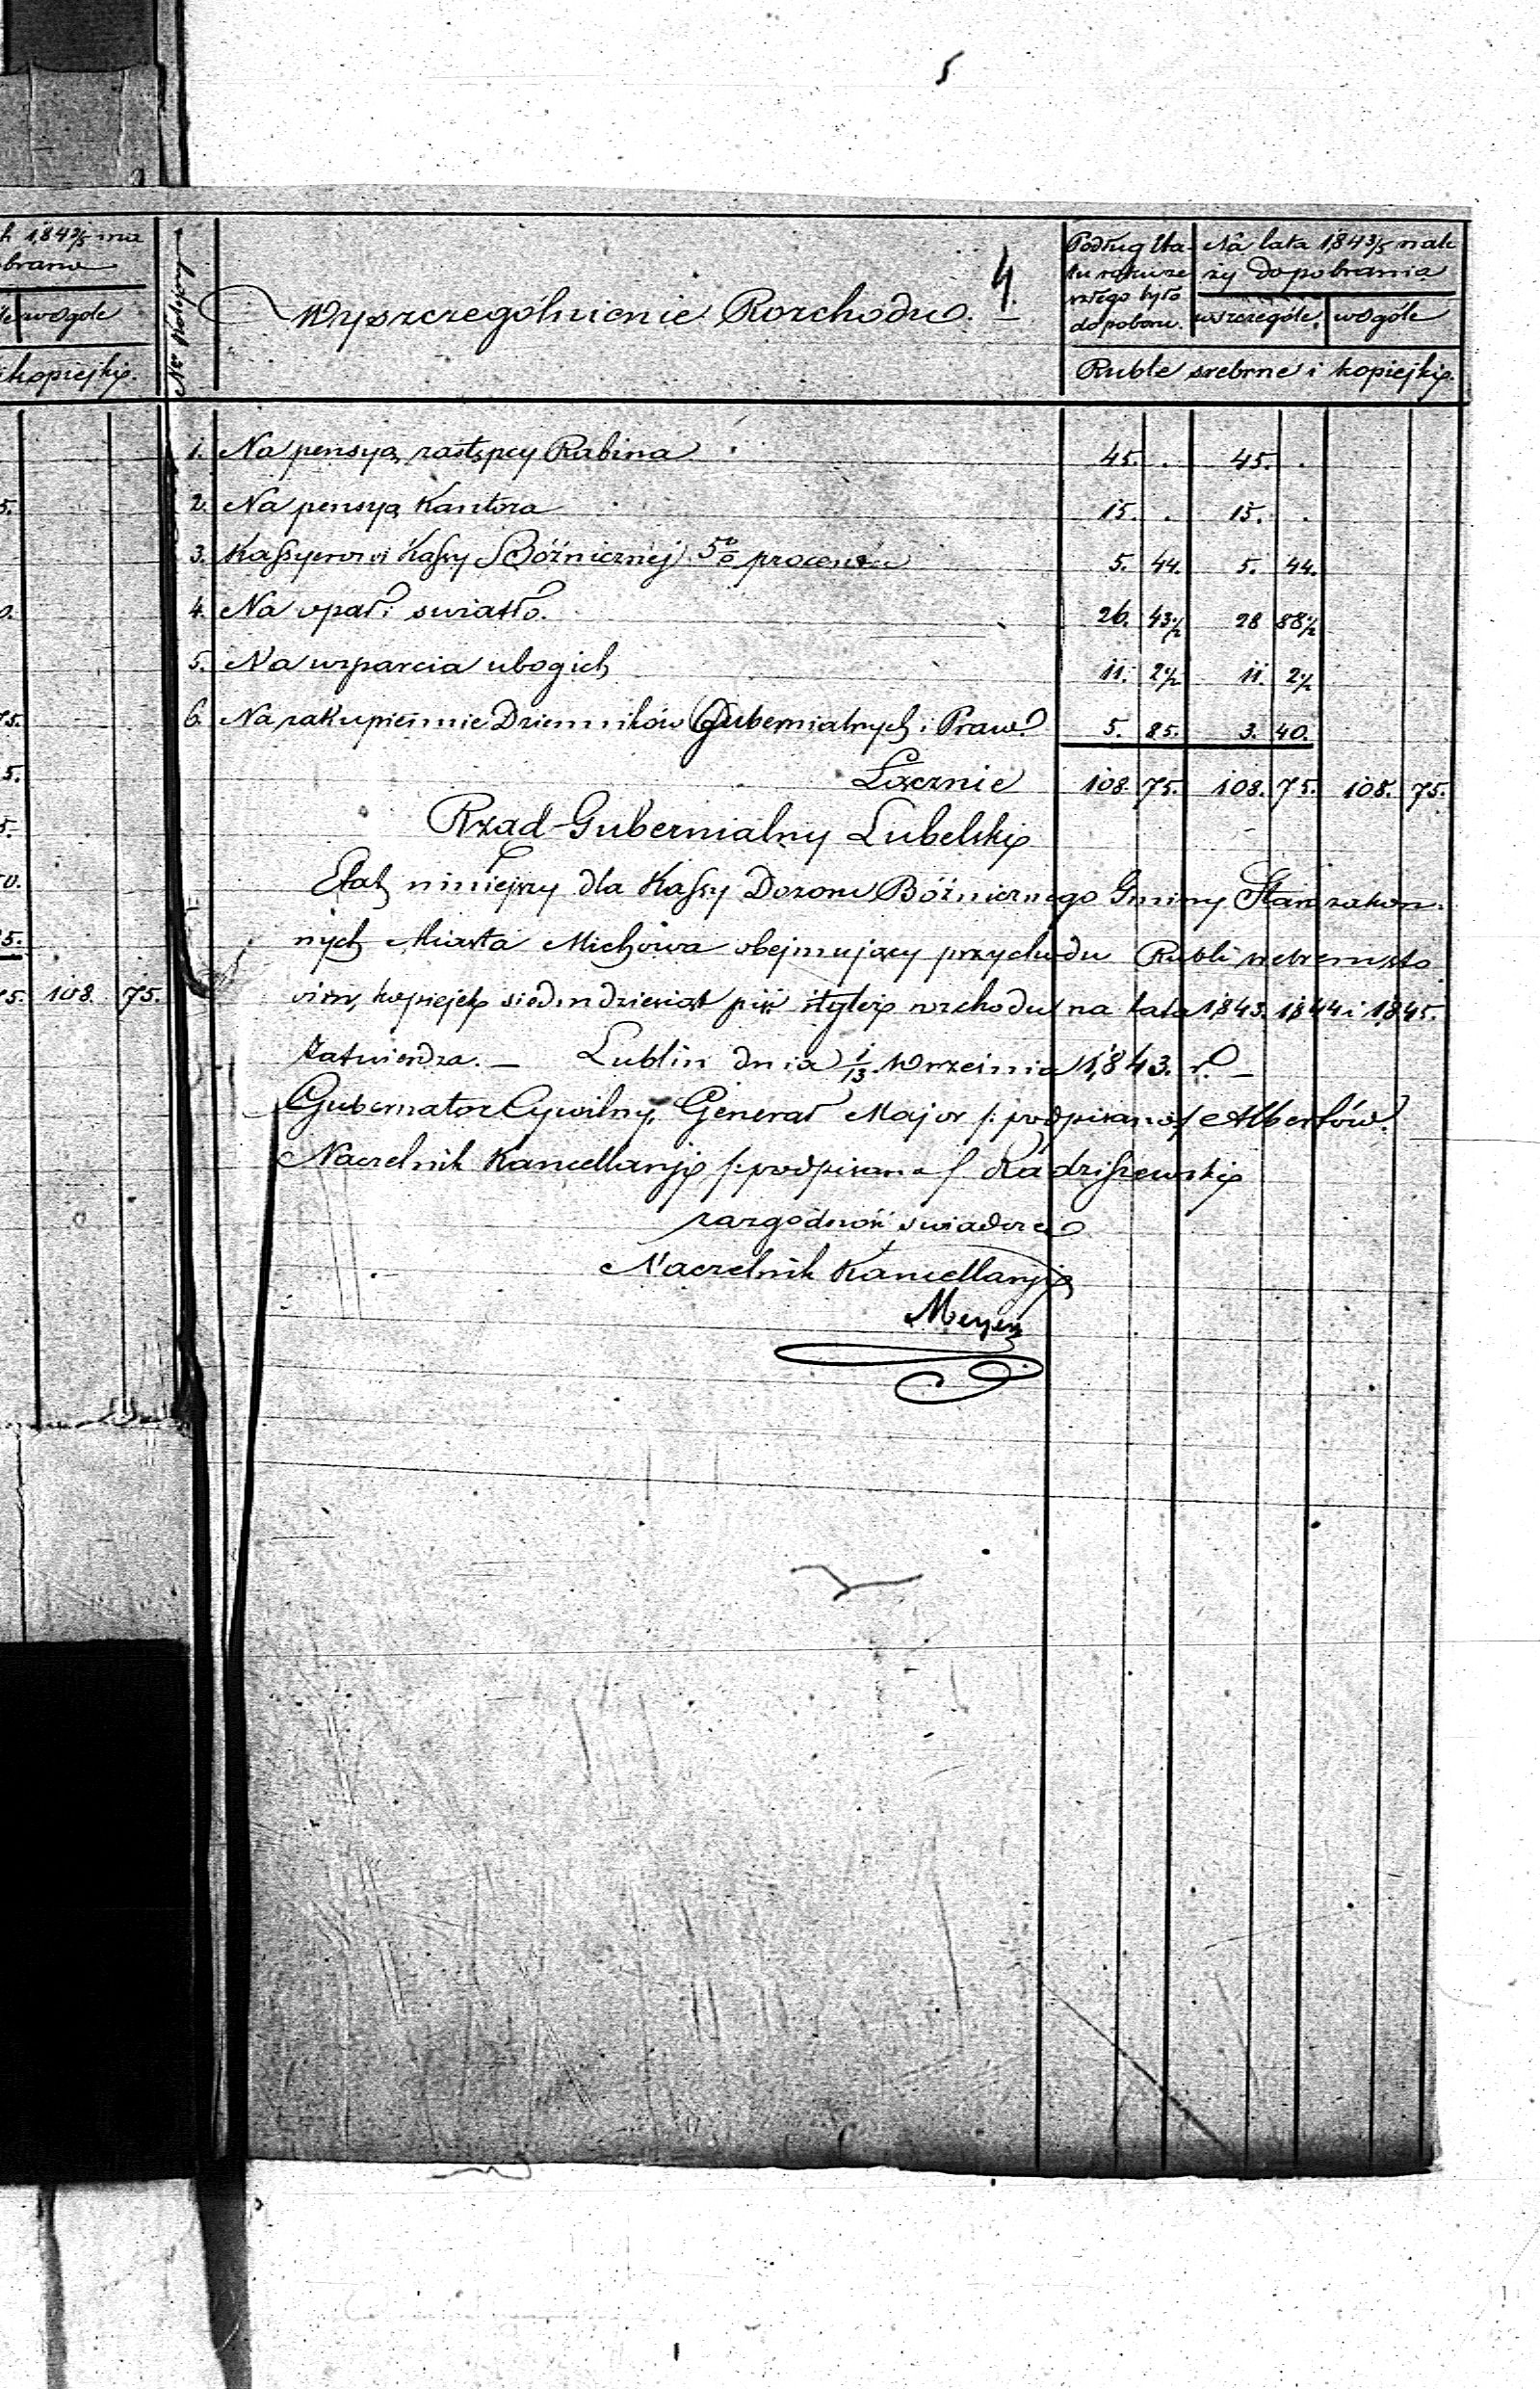 5
h 1,843/5 ma
brano
wogóle
kopiejki.
5.
0.
75.
5.
5.
50.
25.
75. 108. 75.
No pozycyi
Wyszczególnienie Rozchodu.
4.
Podług Eta-
tu roku ze-
szłego było
do poboru.
Na lata 1,843/5 nale
ży do pobrania
wszczególe. wogóle
Ruble srebrne i kopiejki.
1. Na pensyą zastępcy Rabina 45. . 45. .
2. Na pensyą Kantora 15. . 15. .
3. Kassyerowi Kassy Bóżnicznej 5% procentu 5. 44. 5. 44.
4. Na opał i swiatło. 26. 43½ 28 88½
5. Na wsparcia ubogich 11. 2½ 11. 2½
6. Na zakupienie Dzienników Gubernialnych i Praw 5. 85. 3. 40.
Łącznie 108. 75. 108. 75. 108. 75.
Rząd Gubernialny Lubelski
Etat niniejszy dla Kassy Dozoru Bóżnicznego Gminy Starozakon-
nych Miasta Michowa obejmujący przychodu Rubli srebrem sto
ośm, kopiejek siedmdziesiąt pięć i tyleż rozchodu na lata 1,843. 1,844 i 1,845.
Zatwierdza. — Lublin dnia 1/13 Września 1,843. r. —
Gubernator Cywilny, Generał Major /: podpisano / Albertów.
Naczelnik Kancellaryi /: podpisano / Radziszewski
za zgodność swiadczę
Naczelnik Kancellaryi